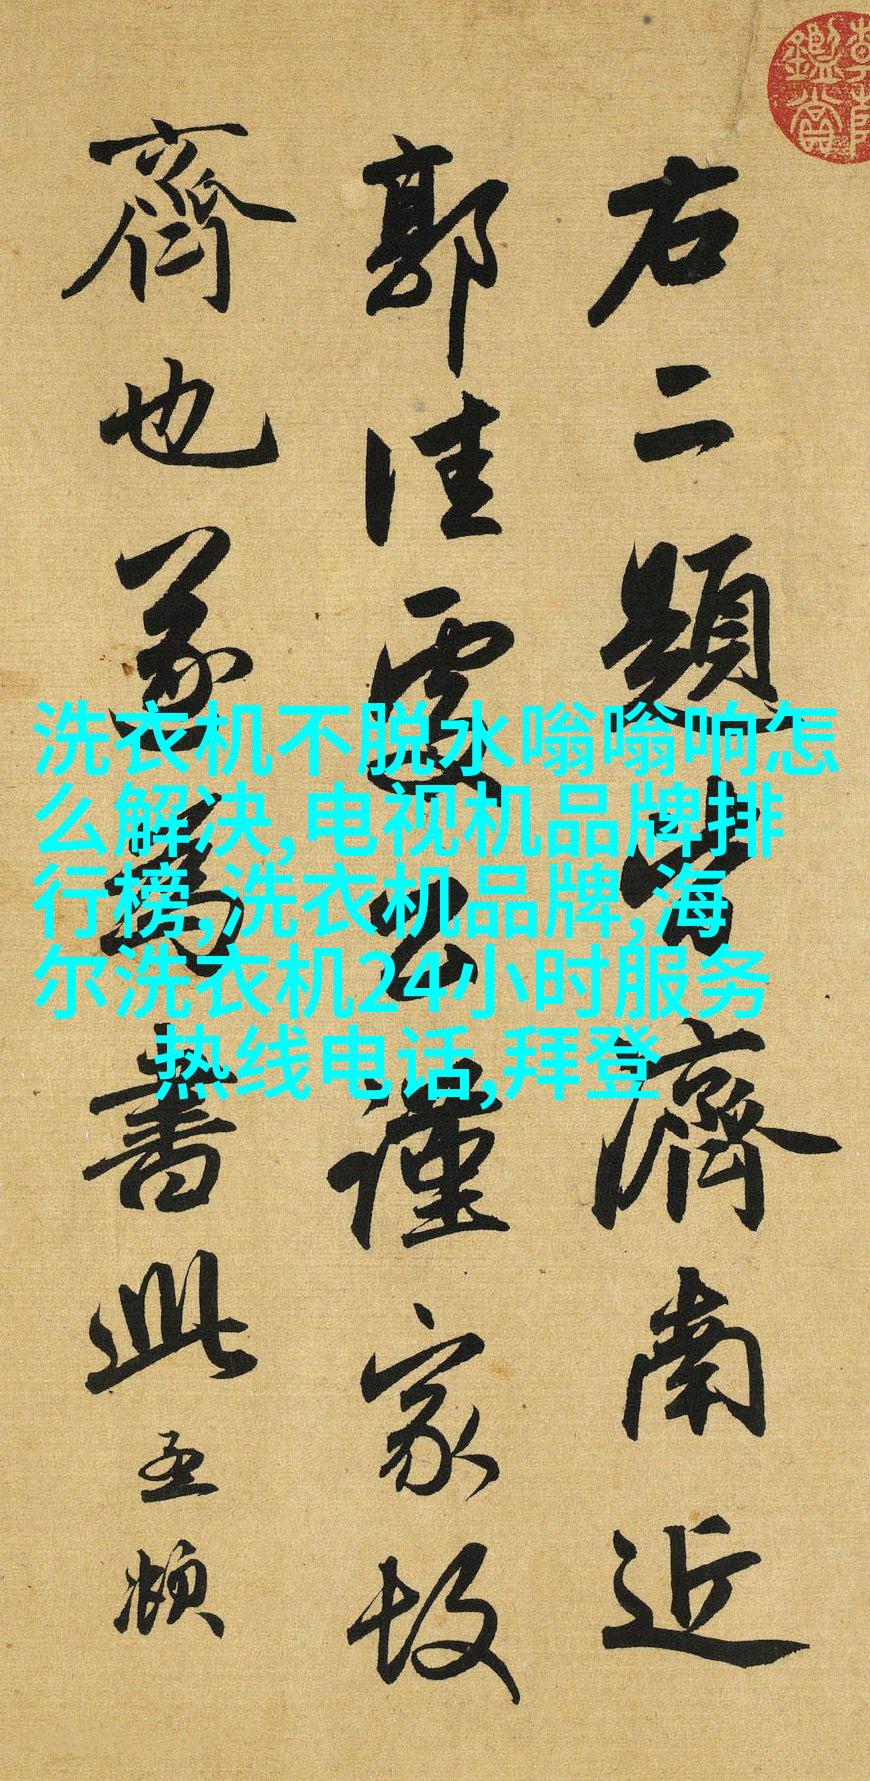 右二題皆濟南近
郭佳處公謹家故
齊也遂為書此孟頫
洗衣机不脱水嗡嗡响怎
么解决,电视机品牌排
行榜,洗衣机品牌,海
尔洗衣机24小时服务
热线电话,拜登